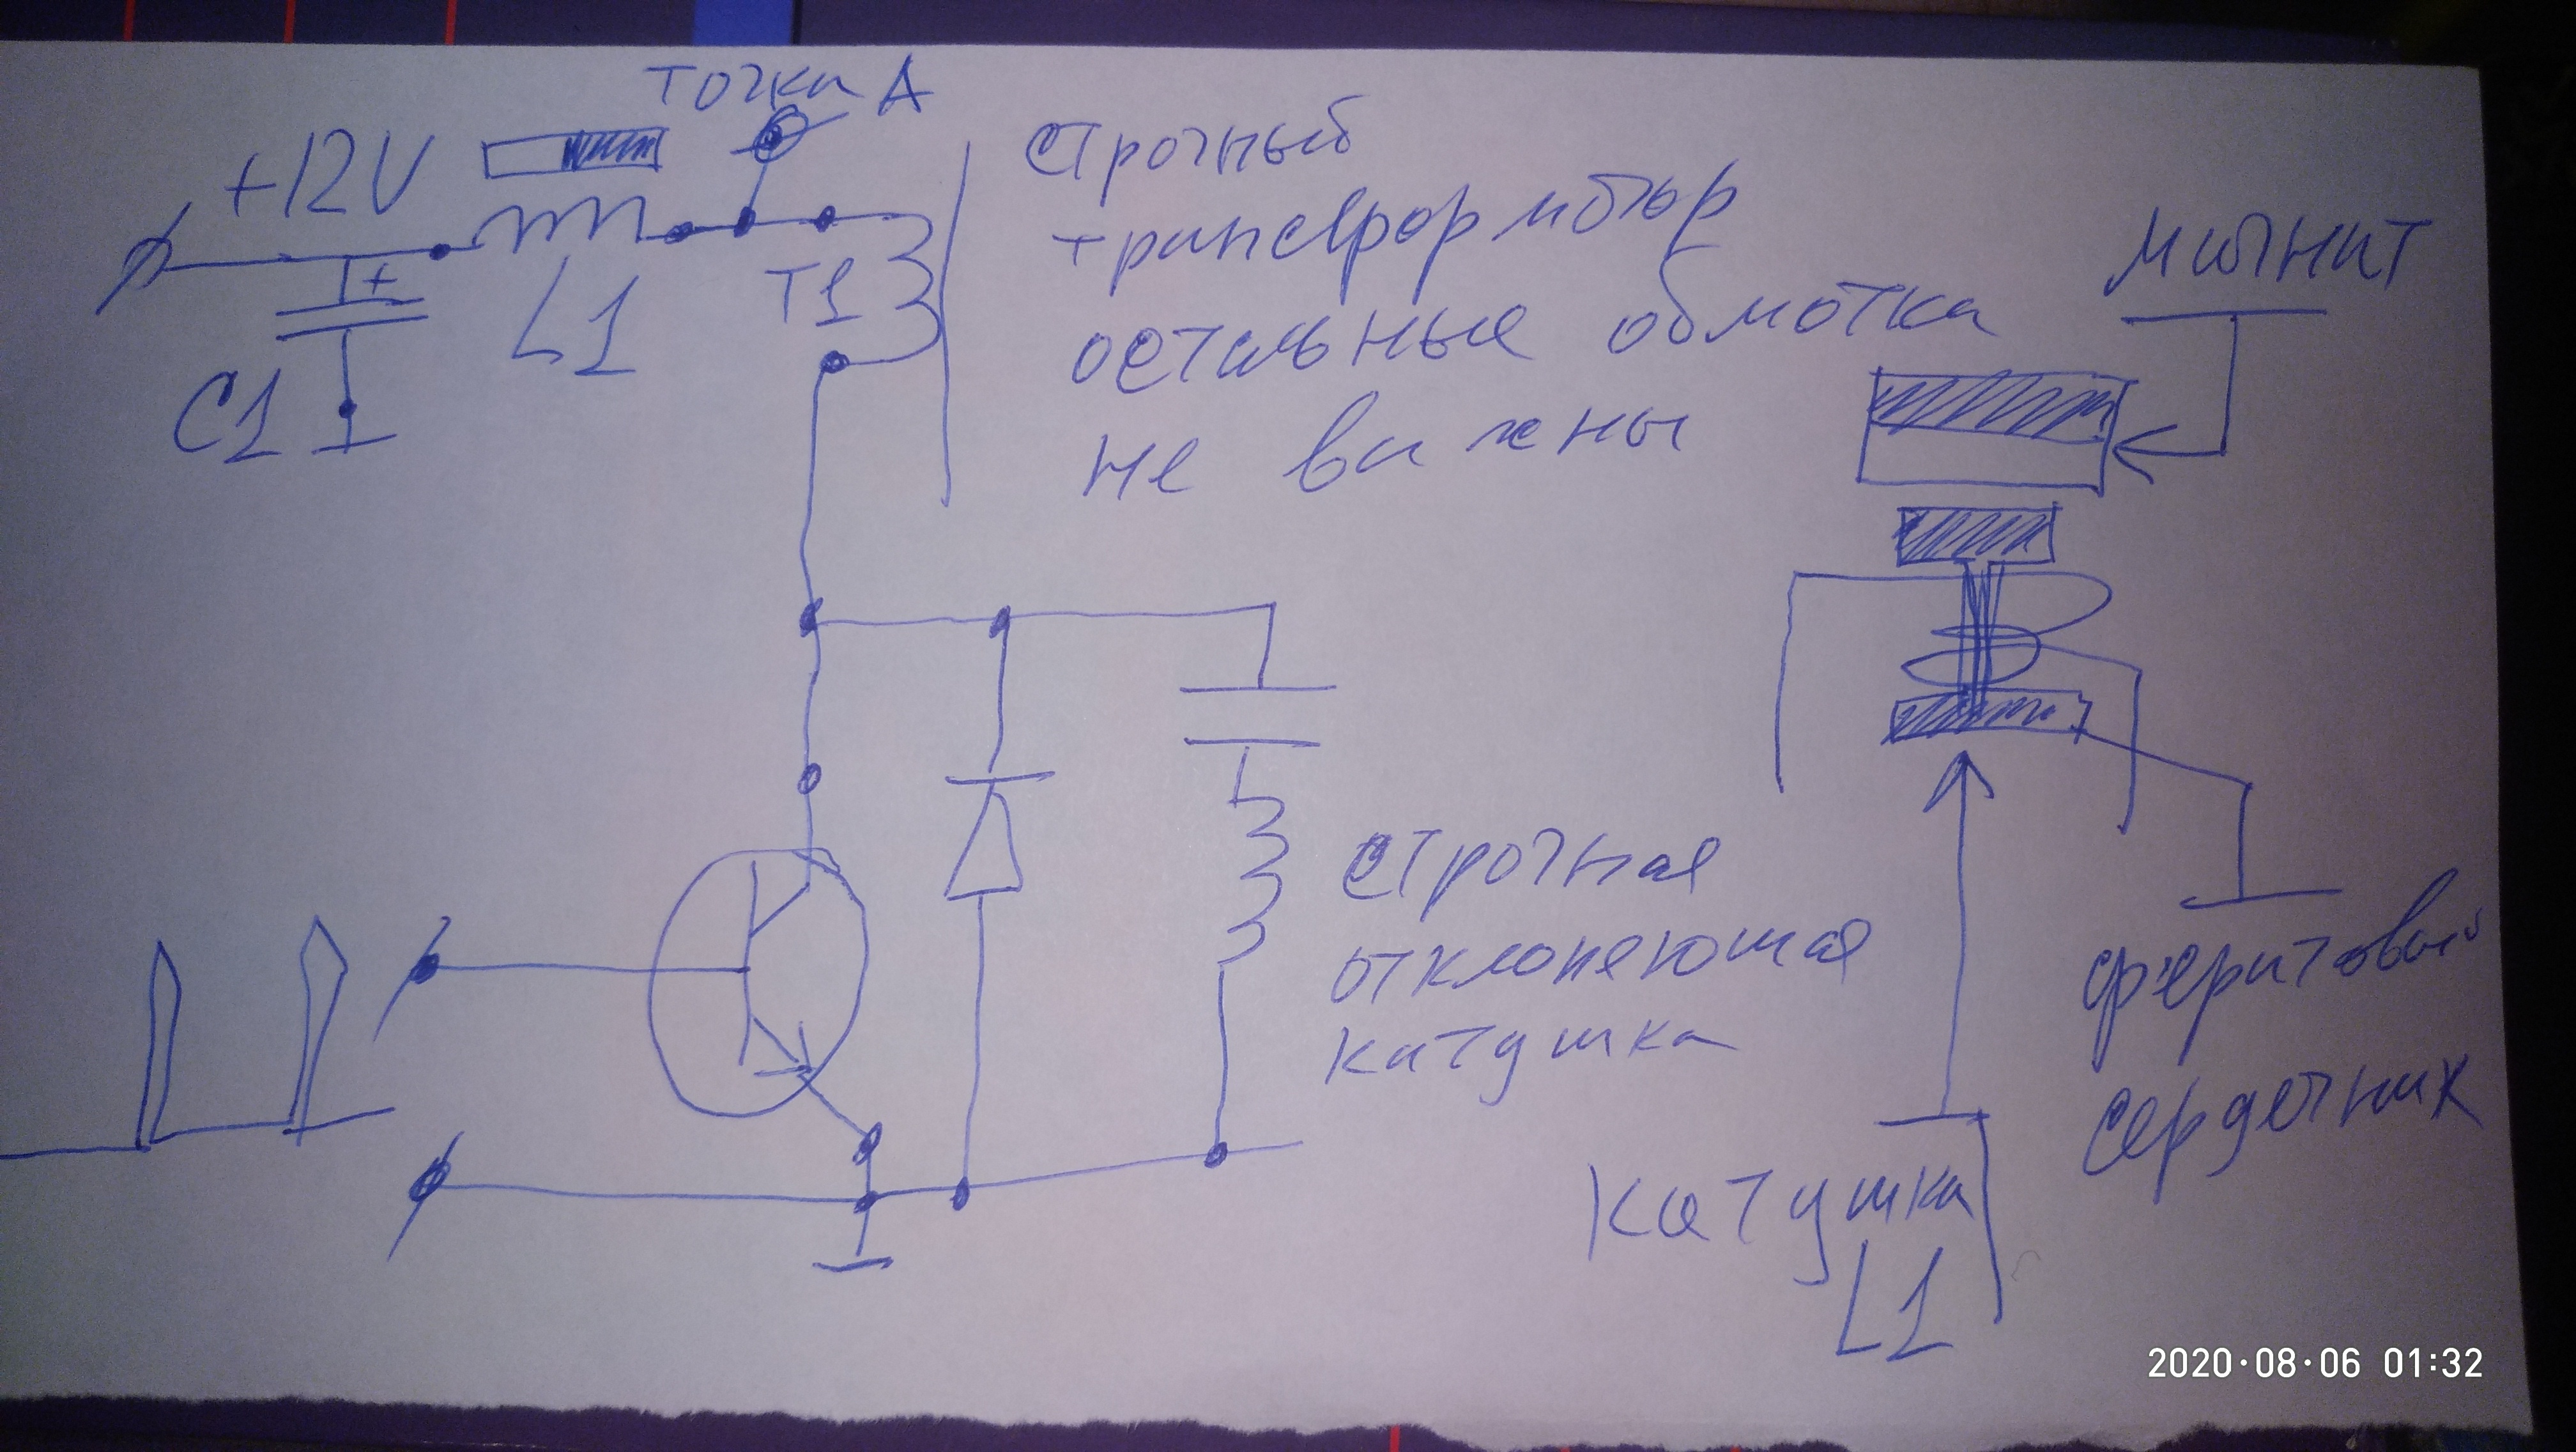 точка А
+12V
C1
L1
T1
строчный
трансформатор
остальные обмотка
не важны
магнит
строчная
отклоняющая
катушка
феритовый
сердечник
катушка
L1
2020·08·06 01:32